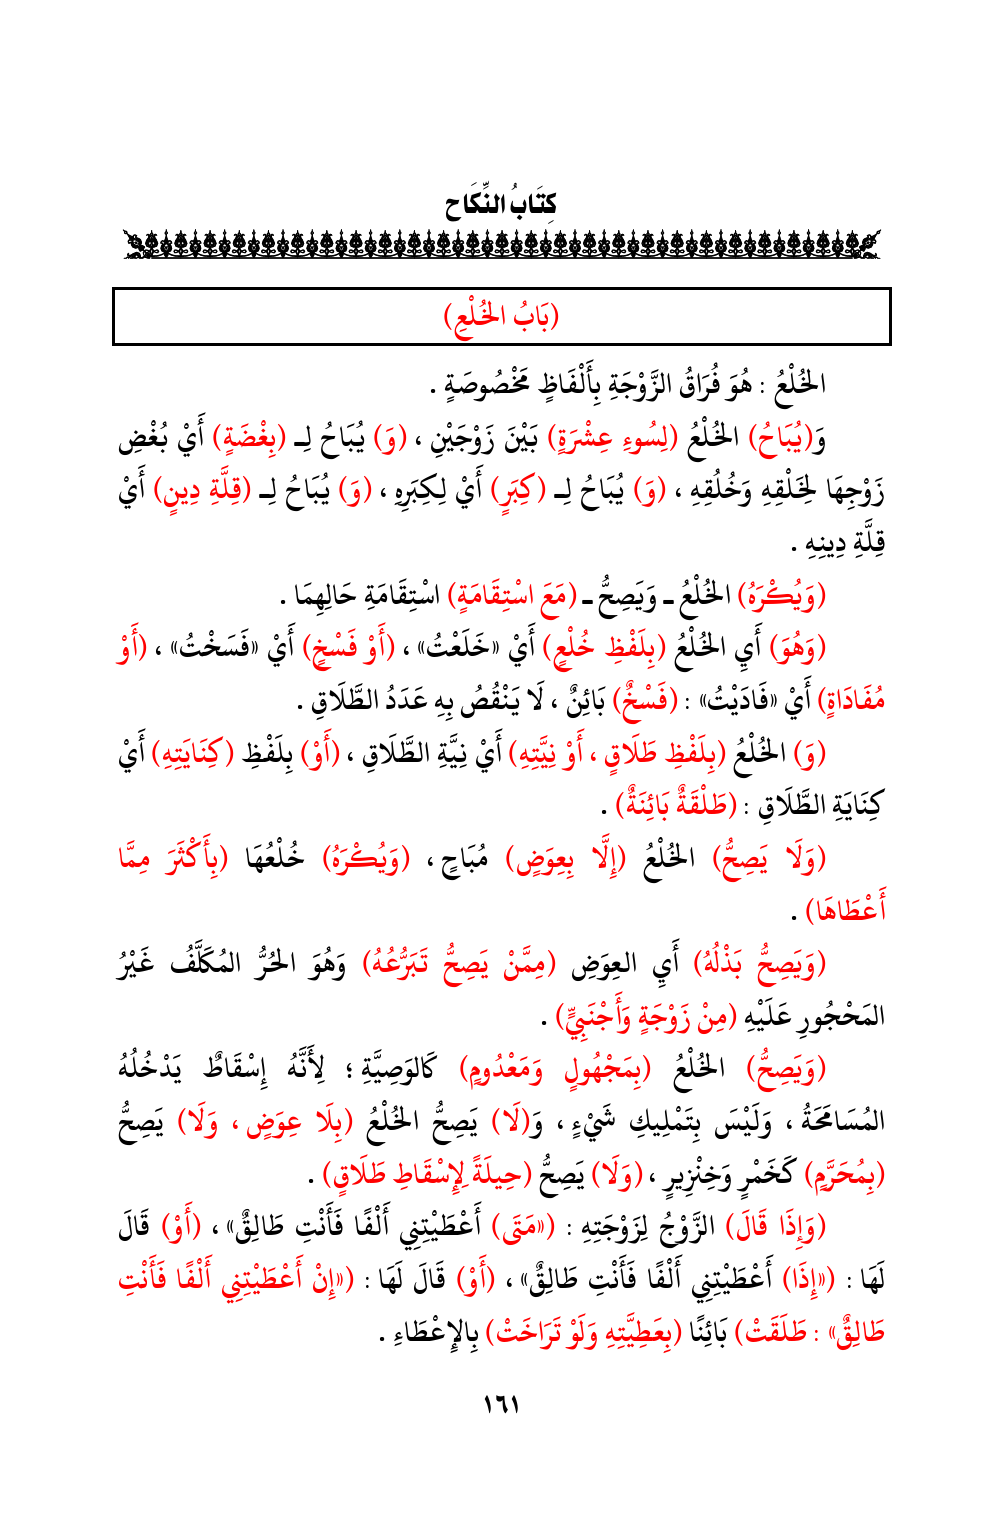 كِتَابُ النِّكَاح
(بَابُ الخُلْعِ)
الخُلْعُ : هُوَ فُرَاقُ الزَّوْجَةِ بِأَلْفَاظٍ مَخْصُوصَةٍ .
وَ(يُبَاحُ) الخُلْعُ (لِسُوءِ عِشْرَةٍ) بَيْنَ زَوْجَيْنِ ، (وَ) يُبَاحُ لِـ (بِغْضَةٍ) أَيْ بُغْضِ
زَوْجِهَا لِخَلْقِهِ وَخُلُقِهِ ، (وَ) يُبَاحُ لِـ (كِبَرٍ) أَيْ لِكِبَرِهِ ، (وَ) يُبَاحُ لِـ (قِلَّةِ دِينٍ) أَيْ
قِلَّةِ دِينِهِ .
(وَيُكْرَهُ) الخُلْعُ ـ وَيَصِحُّ ـ (مَعَ اسْتِقَامَةٍ) اسْتِقَامَةِ حَالِهِمَا .
(وَهُوَ) أَيِ الخُلْعُ (بِلَفْظِ خُلْعٍ) أَيْ «خَلَعْتُ» ، (أَوْ فَسْخٍ) أَيْ «فَسَخْتُ» ، (أَوْ
مُفَادَاةٍ) أَيْ «فَادَيْتُ» : (فَسْخٌ) بَائِنٌ ، لَا يَنْقُصُ بِهِ عَدَدُ الطَّلَاقِ .
(وَ) الخُلْعُ (بِلَفْظِ طَلَاقٍ ، أَوْ نِيَّتِهِ) أَيْ نِيَّةِ الطَّلَاقِ ، (أَوْ) بِلَفْظِ (كِنَايَتِهِ) أَيْ
كِنَايَةِ الطَّلَاقِ : (طَلْقَةٌ بَائِنَةٌ) .
(وَلَا يَصِحُّ) الخُلْعُ (إِلَّا بِعِوَضٍ) مُبَاحٍ ، (وَيُكْرَهُ) خُلْعُهَا (بِأَكْثَرَ مِمَّا
أَعْطَاهَا) .
(وَيَصِحُّ بَذْلُهُ) أَيِ العِوَضِ (مِمَّنْ يَصِحُّ تَبَرُّعُهُ) وَهُوَ الحُرُّ المُكَلَّفُ غَيْرُ
المَحْجُورِ عَلَيْهِ (مِنْ زَوْجَةٍ وَأَجْنَبِيٍّ) .
(وَيَصِحُّ) الخُلْعُ (بِمَجْهُولٍ وَمَعْدُومٍ) كَالوَصِيَّةِ ؛ لِأَنَّهُ إِسْقَاطٌ يَدْخُلُهُ
المُسَامَحَةُ ، وَلَيْسَ بِتَمْلِيكِ شَيْءٍ ، وَ(لَا) يَصِحُّ الخُلْعُ (بِلَا عِوَضٍ ، وَلَا) يَصِحُّ
(بِمُحَرَّمٍ) كَخَمْرٍ وَخِنْزِيرٍ ، (وَلَا) يَصِحُّ (حِيلَةً لِإِسْقَاطِ طَلَاقٍ) .
(وَإِذَا قَالَ) الزَّوْجُ لِزَوْجَتِهِ : («مَتَى) أَعْطَيْتِنِي أَلْفًا فَأَنْتِ طَالِقٌ» ، (أَوْ) قَالَ
لَهَا : («إِذَا) أَعْطَيْتِنِي أَلْفًا فَأَنْتِ طَالِقٌ» ، (أَوْ) قَالَ لَهَا : («إِنْ أَعْطَيْتِنِي أَلْفًا فَأَنْتِ
طَالِقٌ» : طَلَقَتْ) بَائِنًا (بِعَطِيَّتِهِ وَلَوْ تَرَاخَتْ) بِالإِعْطَاءِ .
١٦١